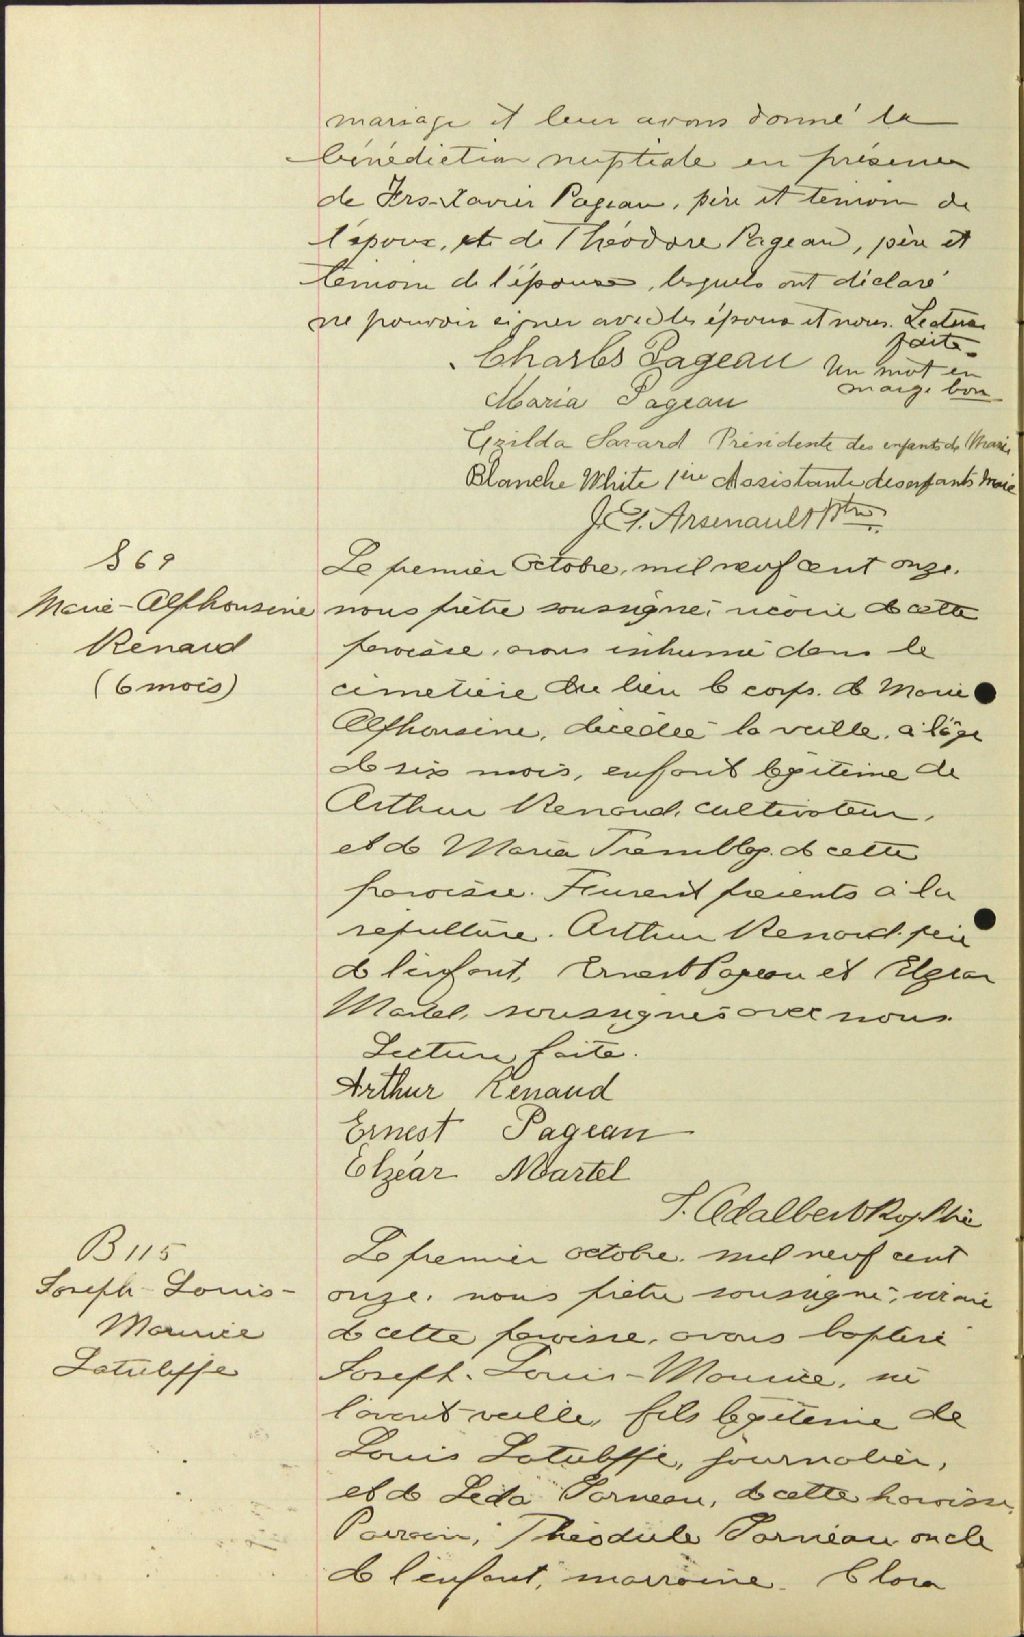 mariage et leur avons donné la
bénédiction nuptiale en présence
de Frs-Xavier Pageau, père et témoin de
l'époux, et de Théodore Pageau, père et
témoin de l'épouse, lesquels ont déclaré
ne pouvoir signer avec les époux et nous. Lecture
faite.
Charles Pageau
Un mot en
marge bon
Maria Pageau
Ezilda Savard Présidente des enfants de Marie
Blanche White 1ère Assistante des enfants Marie
J. E. Arsenault Ptre
S 69
Marie-Alphonsine
Renaud
(6 mois)
Le premier Octobre, mil neuf cent onze,
nous prêtre soussigné, vicaire de cette
paroisse, avons inhumé dans le
cimetière du lieu le corps de Marie
Alphonsine, décédée la veille, à l'âge
de six mois, enfant légitime de
Arthur Renaud, cultivateur,
et de Maria Tremblay de cette
paroisse. Furent présents à la
sépulture. Arthur Renaud père
de l'enfant, Ernest Pageau et Elzéar
Martel, soussignés avec nous.
Lecture faite.
Arthur Renaud
Ernest Pageau
Elzéar Martel
S. Adalbert Roy Ptre
B 115
Joseph-Louis-
Maurice
Latulippe
Le premier octobre, mil neuf cent
onze, nous prêtre soussigné, vicaire
de cette paroisse, avons baptisé
Joseph-Louis-Maurice, né
l'avant-veille, fils légitime de
Louis Latulippe, journalier,
et de Léda Parneau, de cette paroisse.
Parrain, Théodule Parneau oncle
de l'enfant, marraine. Clora